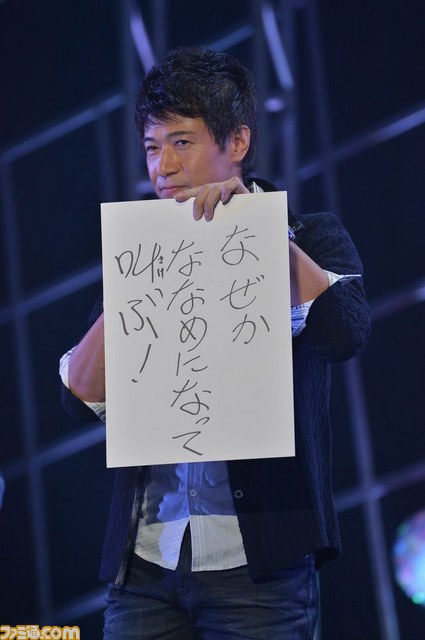 なぜか
ななめになって
叫ぶ！
さけ
ファミ通.com